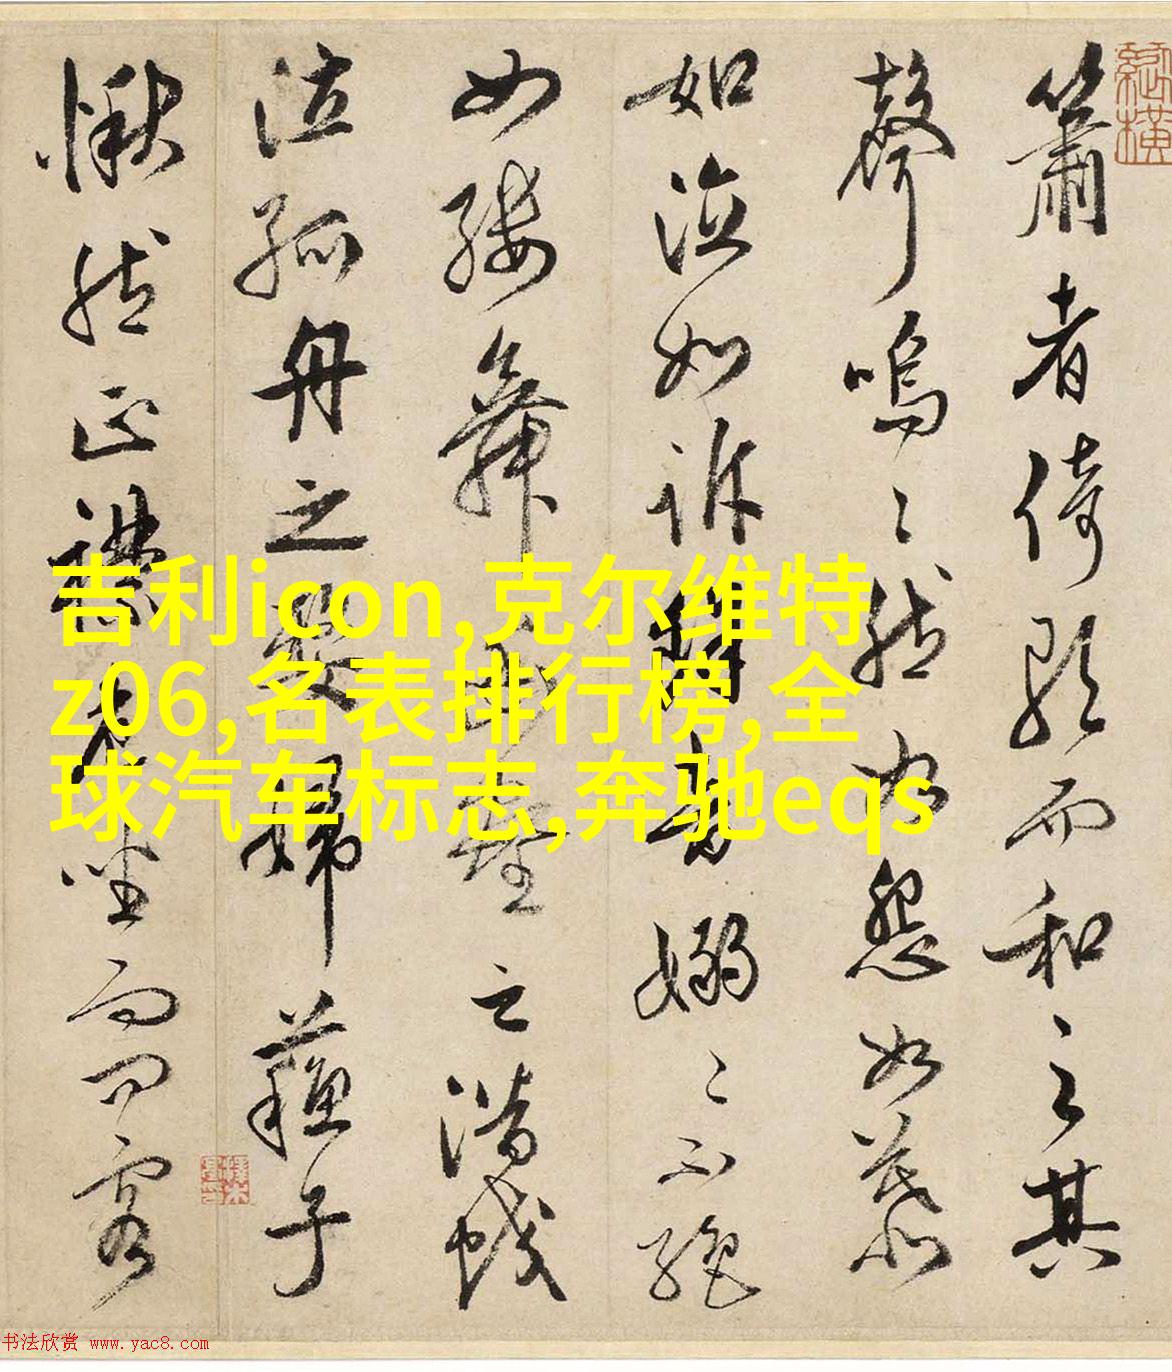 簫者倚歌而和之其
聲嗚〻然如怨如慕
如泣如訴餘音嫋〻不絕
如縷舞幽壑之潛蛟
泣孤舟之嫠婦蘇子
愀然正襟危坐而問客
吉利icon,克尔维特
z06,名表排行榜,全
球汽车标志,奔驰eqs
书法欣赏 www.yac8.com